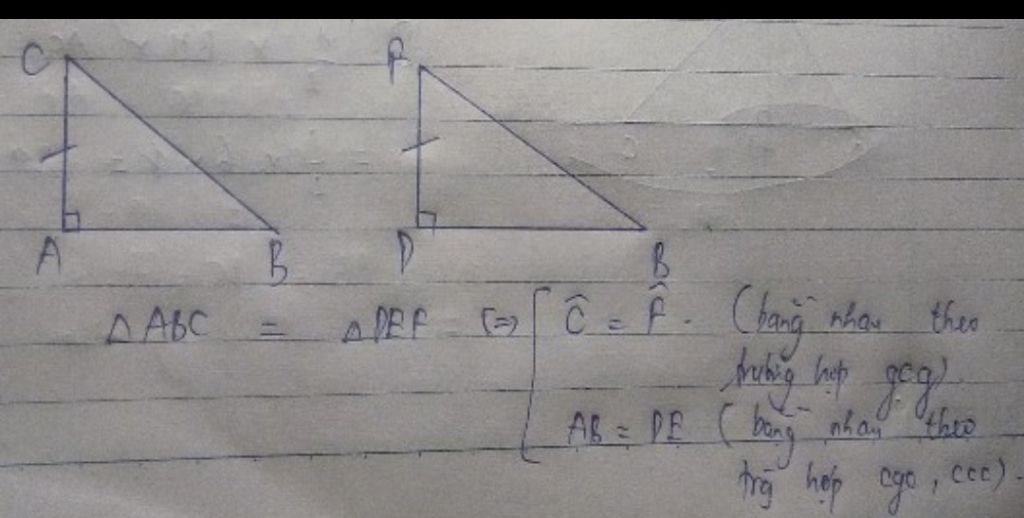 C F
A B D B
△ABC = △DEF (=) [ Ĉ = F̂. (bằng nhau theo
trường hợp gcg)
AB = DE (bằng nhau theo
trg hợp cgc, ccc).